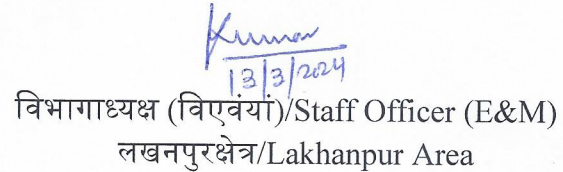 Kumar
13/3/2024
विभागाध्यक्ष (विएवंयां)/Staff Officer (E&M)
लखनपुरक्षेत्र/Lakhanpur Area